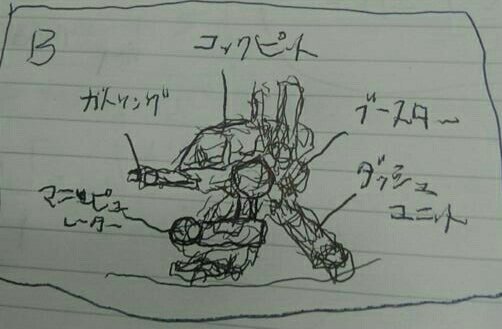 B
コックピット
ガトリング
ブースター
マニュピュ
レーター
ダッシュ
ユニット